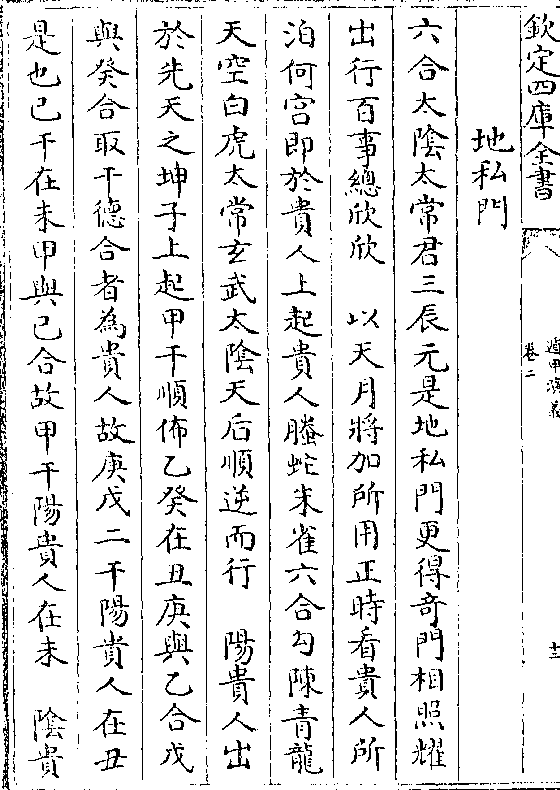 欽定四庫全書
遁甲演義
卷二
十二
地私門
六合太陰太常君三辰元是地私門更得竒門相照耀
出行百事總欣欣　以天月將加所用正時看貴人所
泊何宫即於貴人上起貴人螣蛇朱雀六合勾陳青龍
天空白虎太常玄武太陰天后順逆而行　陽貴人出
於先天之坤子上起甲干順佈乙癸在丑庚與乙合戊
與癸合取干德合者為貴人故庚戊二干陽貴人在丑
是也己干在未甲與己合故甲干陽貴人在未　陰貴